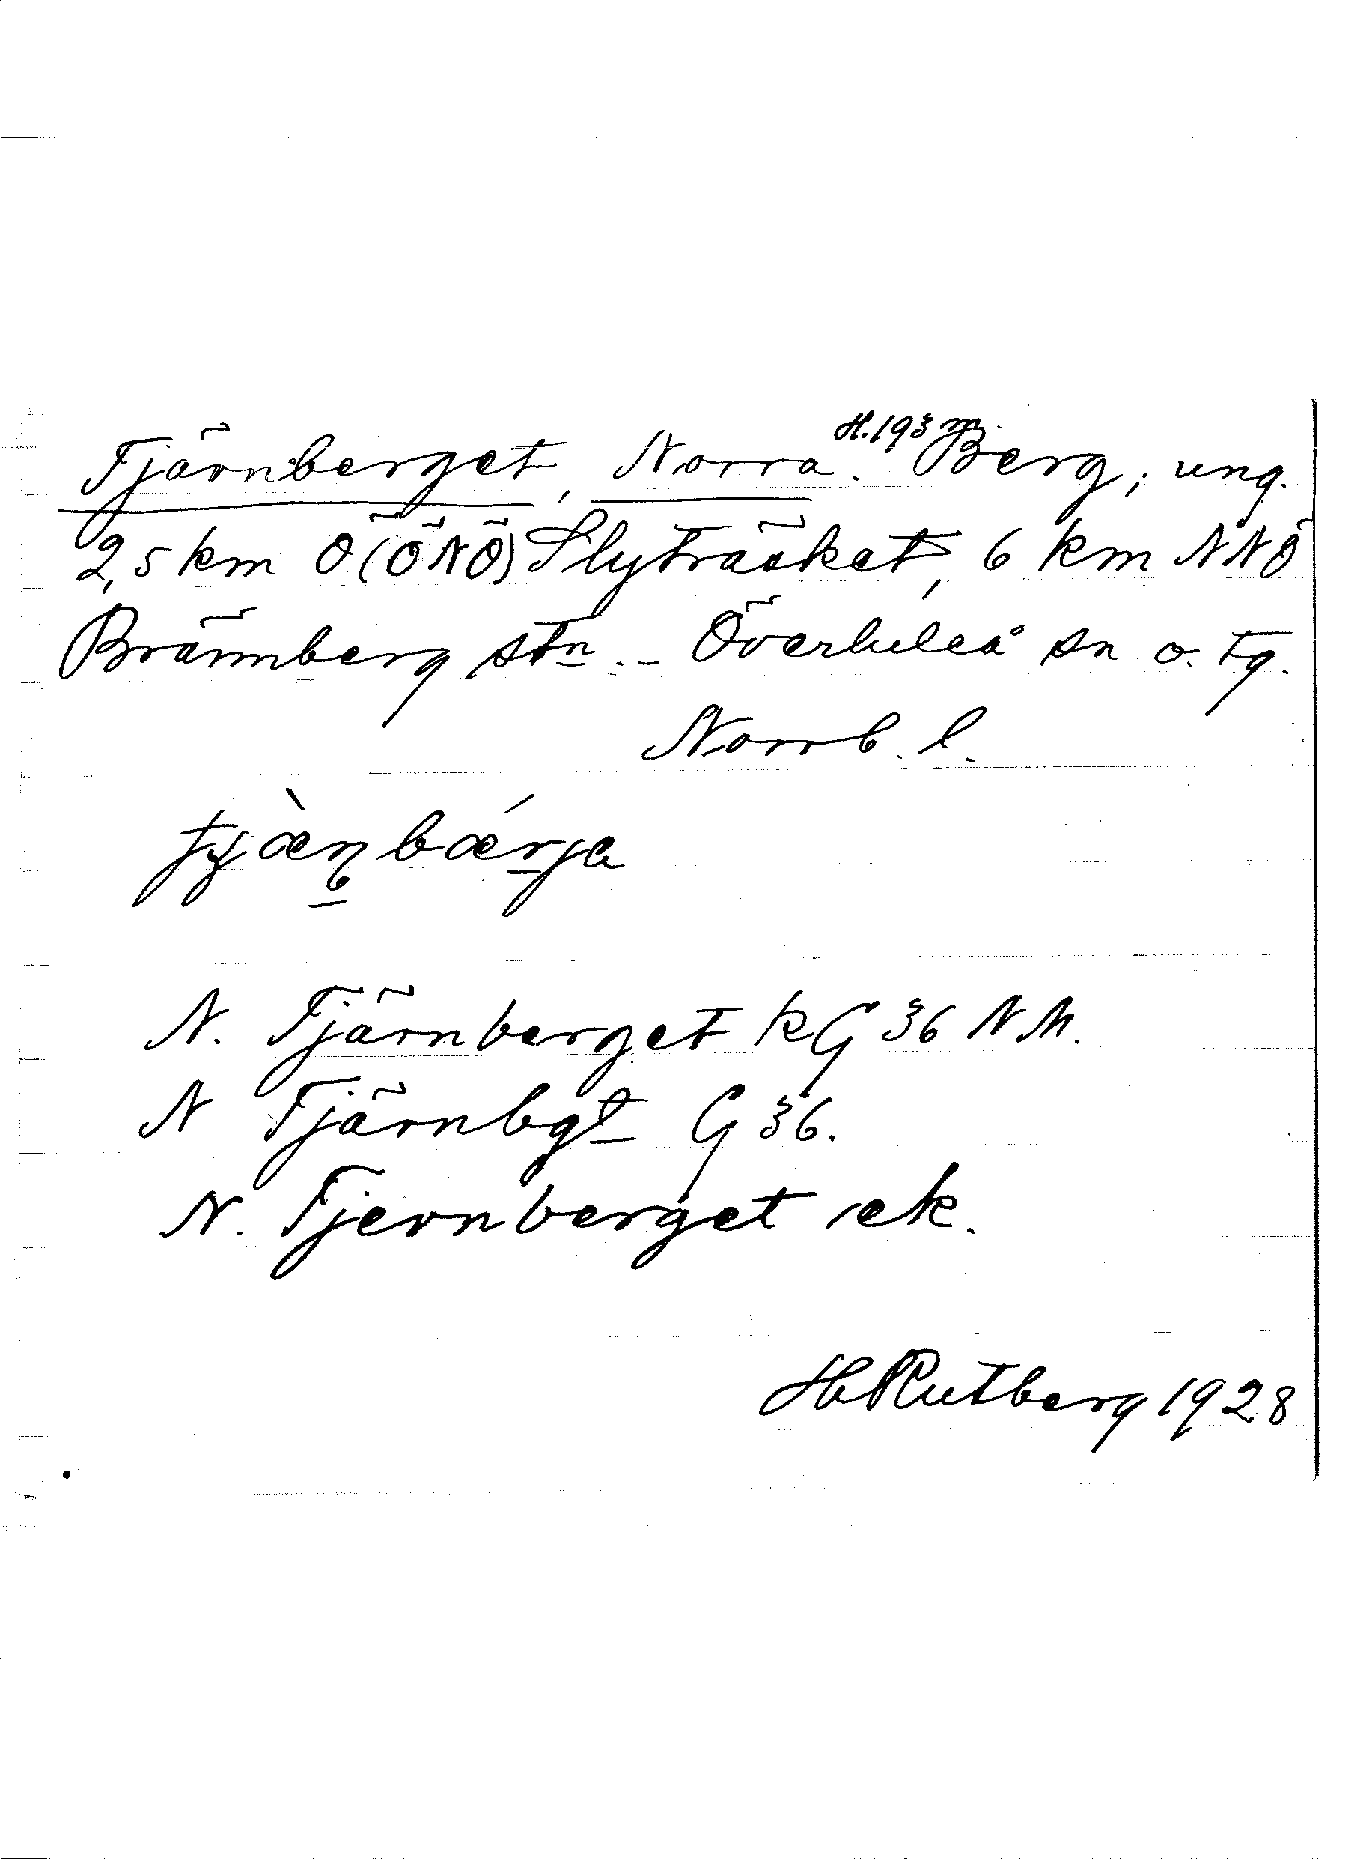 Tjärnberget, Norra. H. 193 m. Berg, ung.
2,5 km Ö (ÖNÖ) Slyträsket, 6 km NNÖ
Brännberg stn. – Överluleå sn o. tg.
Norrb. l.
N. Tjärnberget kG 36 NM.
N Tjärnbgt G 36.
N. Tjernberget ek.
H Rutberg 1928